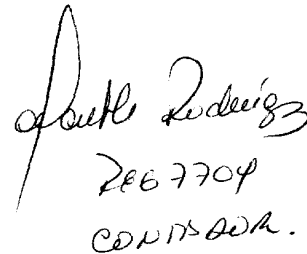 Rodríguez
REG 7704
CONTADOR.